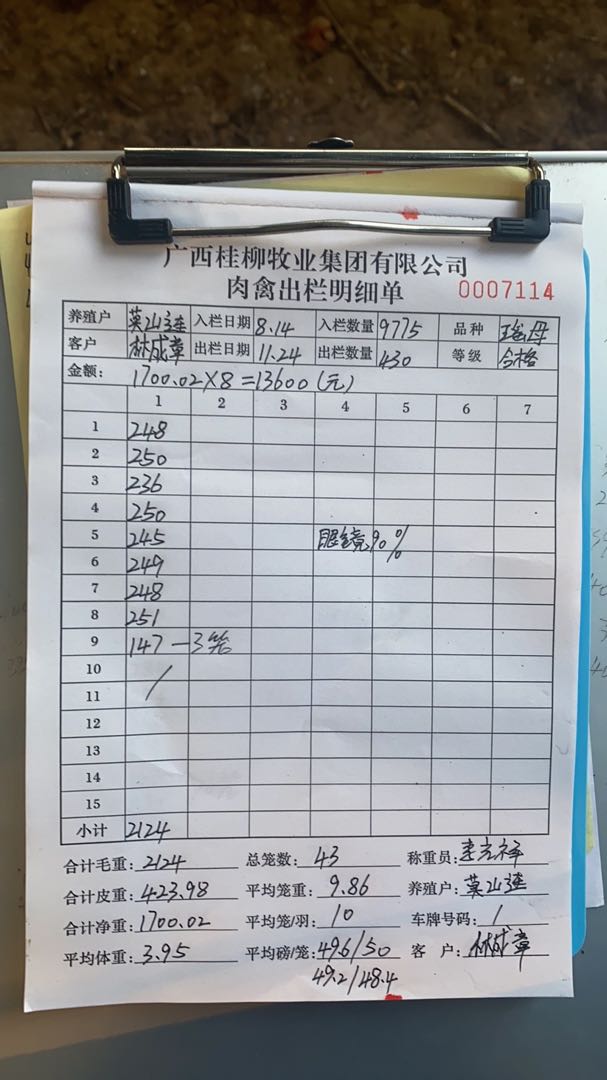 广西桂柳牧业集团有限公司
肉禽出栏明细单 0007114
养殖户 莫山连 入栏日期 8.14 入栏数量 9775 品种 瑶母
客户 林成章 出栏日期 11.24 出栏数量 430 等级 合格
金额: 1700.02×8=13600(元)
1 2 3 4 5 6 7
1 248
2 250
3 236
4 250
5 245 眼镜90%
6 249
7 248
8 251
9 147 — 3笼
10 /
11
12
13
14
15
小计 2124
合计毛重: 2124 总笼数: 43 称重员:
合计皮重: 423.98 平均笼重: 9.86 养殖户: 莫山连
合计净重: 1700.02 平均笼/羽: 10 车牌号码: /
平均体重: 3.95 平均磅/笼: 49.6/50 客 户: 林成章
49.2/48.4